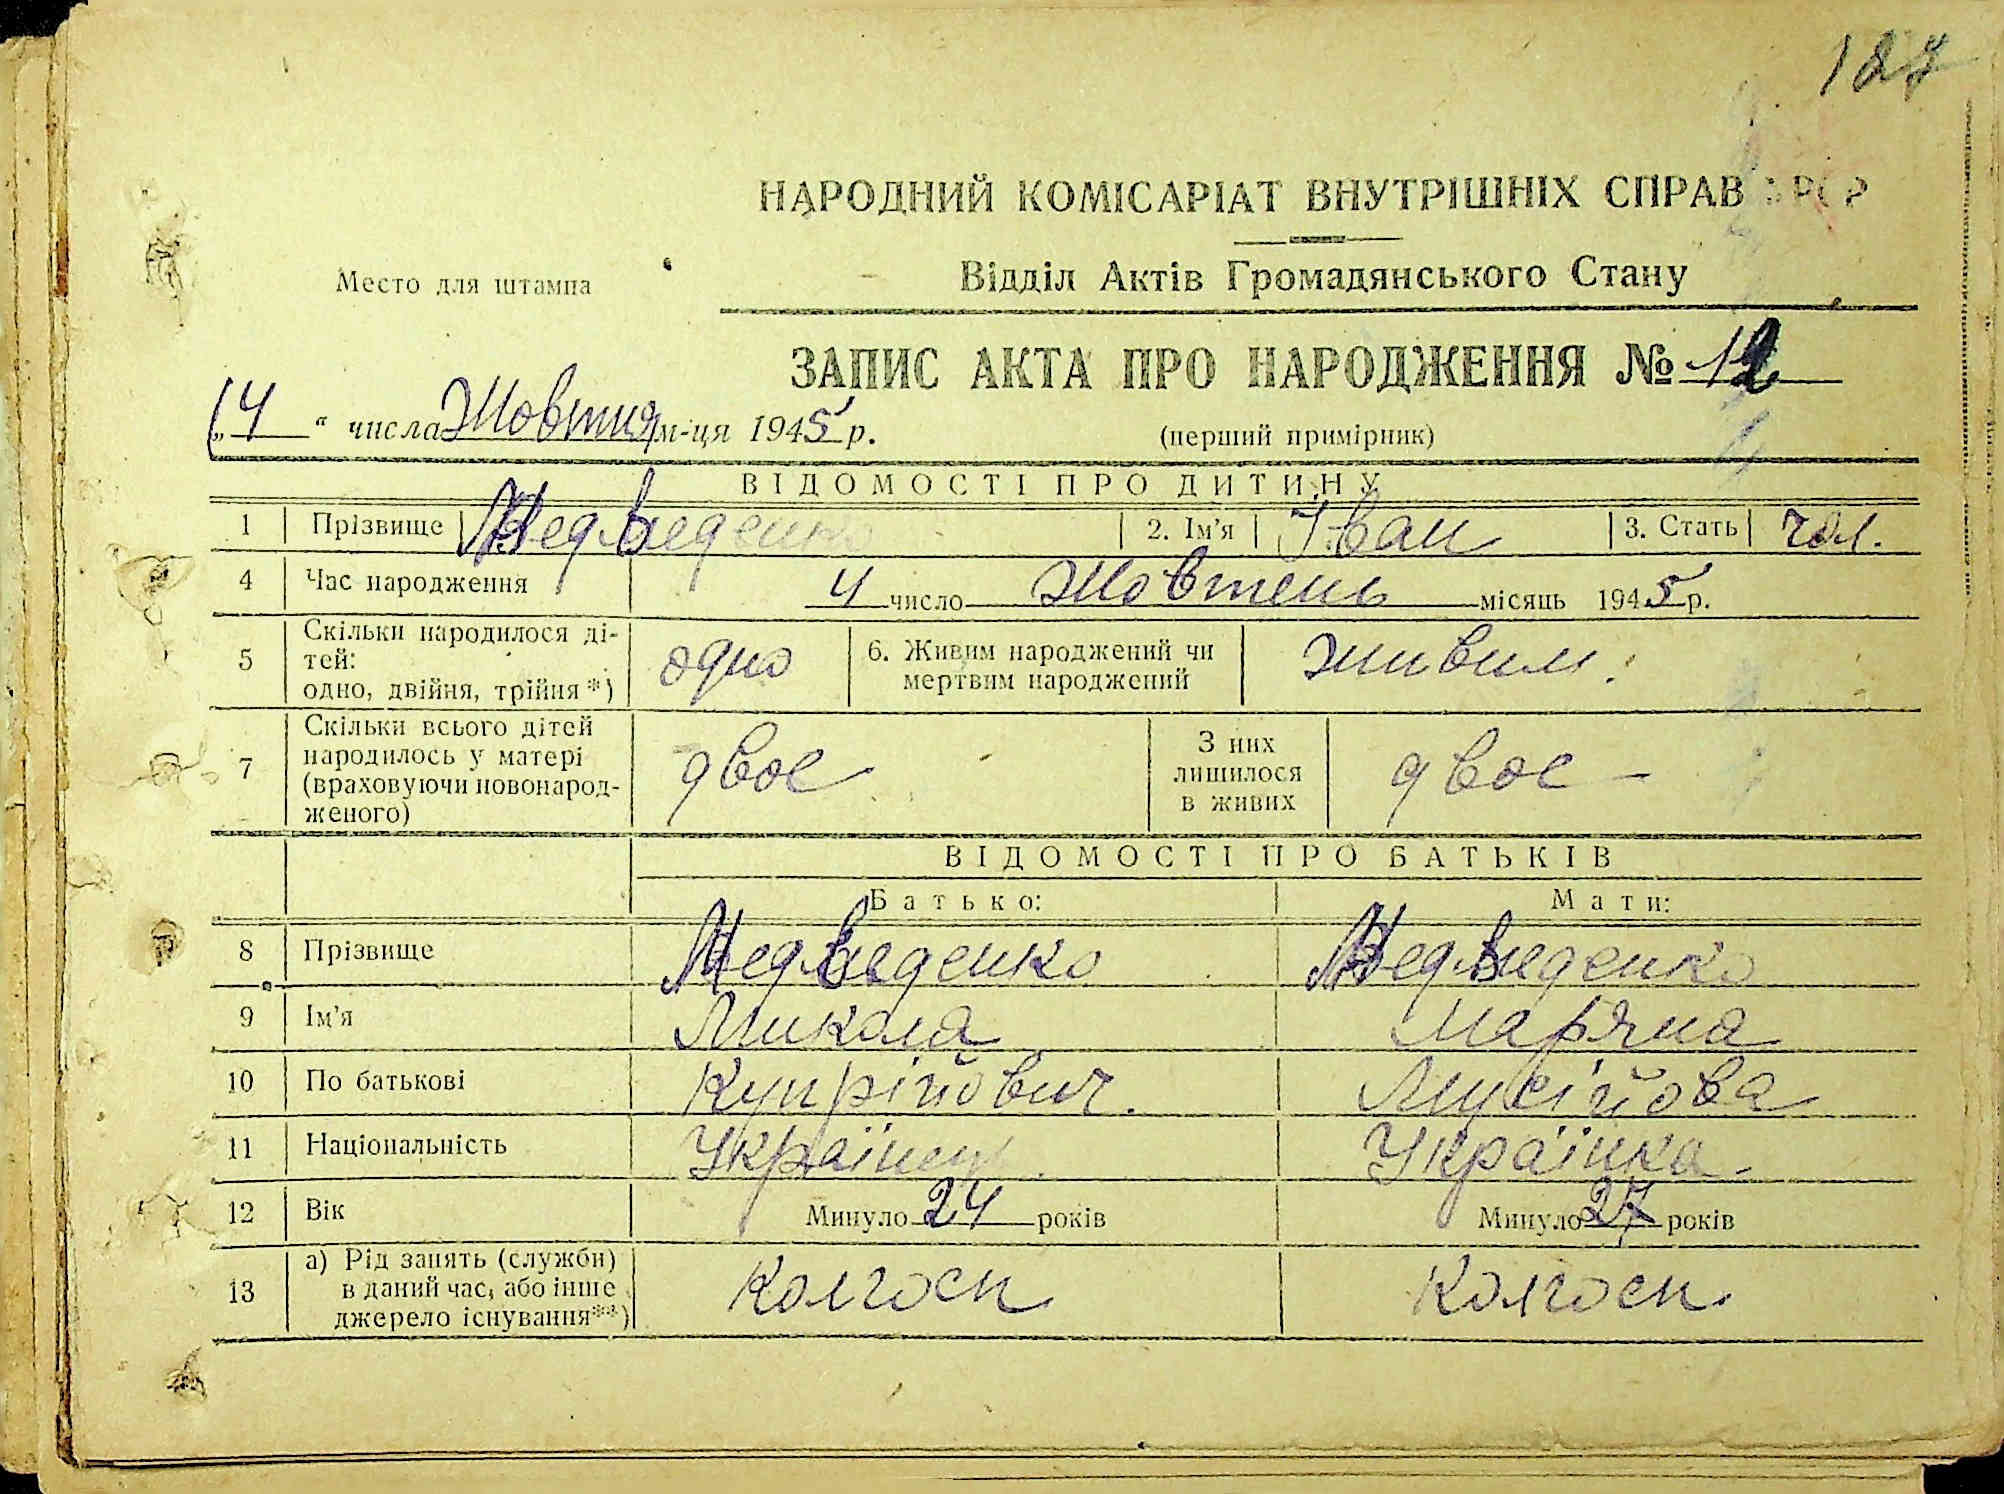 127
НАРОДНИЙ КОМІСАРІАТ ВНУТРІШНІХ СПРАВ УРСР
Место для штампа
Відділ Актів Громадянського Стану
ЗАПИС АКТА ПРО НАРОДЖЕННЯ № 12
„4“ числа Жовтня м-ця 1945 р.
(перший примірник)
ВІДОМОСТІ ПРО ДИТИНУ
1 Прізвище Медведенко 2. Ім'я Іван 3. Стать чол.
4 Час народження 4 число Жовтень місяць 1945 р.
5 Скільки народилося ді-
тей:
одно, двійня, трійня*) одно 6. Живим народжений чи
мертвим народжений живим.
7 Скільки всього дітей
народилось у матері
(враховуючи новонарод-
женого) двоє З них
лишилося
в живих двоє -
ВІДОМОСТІ ПРО БАТЬКІВ
Батько: Мати:
8 Прізвище Медведенко Медведенко
9 Ім'я Микола Мар'яна
10 По батькові Купрійович. Мусійова
11 Національність Українец Українка -
12 Вік Минуло 24 років Минуло 27 років
13 а) Рід занять (служби)
в даний час, або інше
джерело існування**) Колгосп Колгосп.